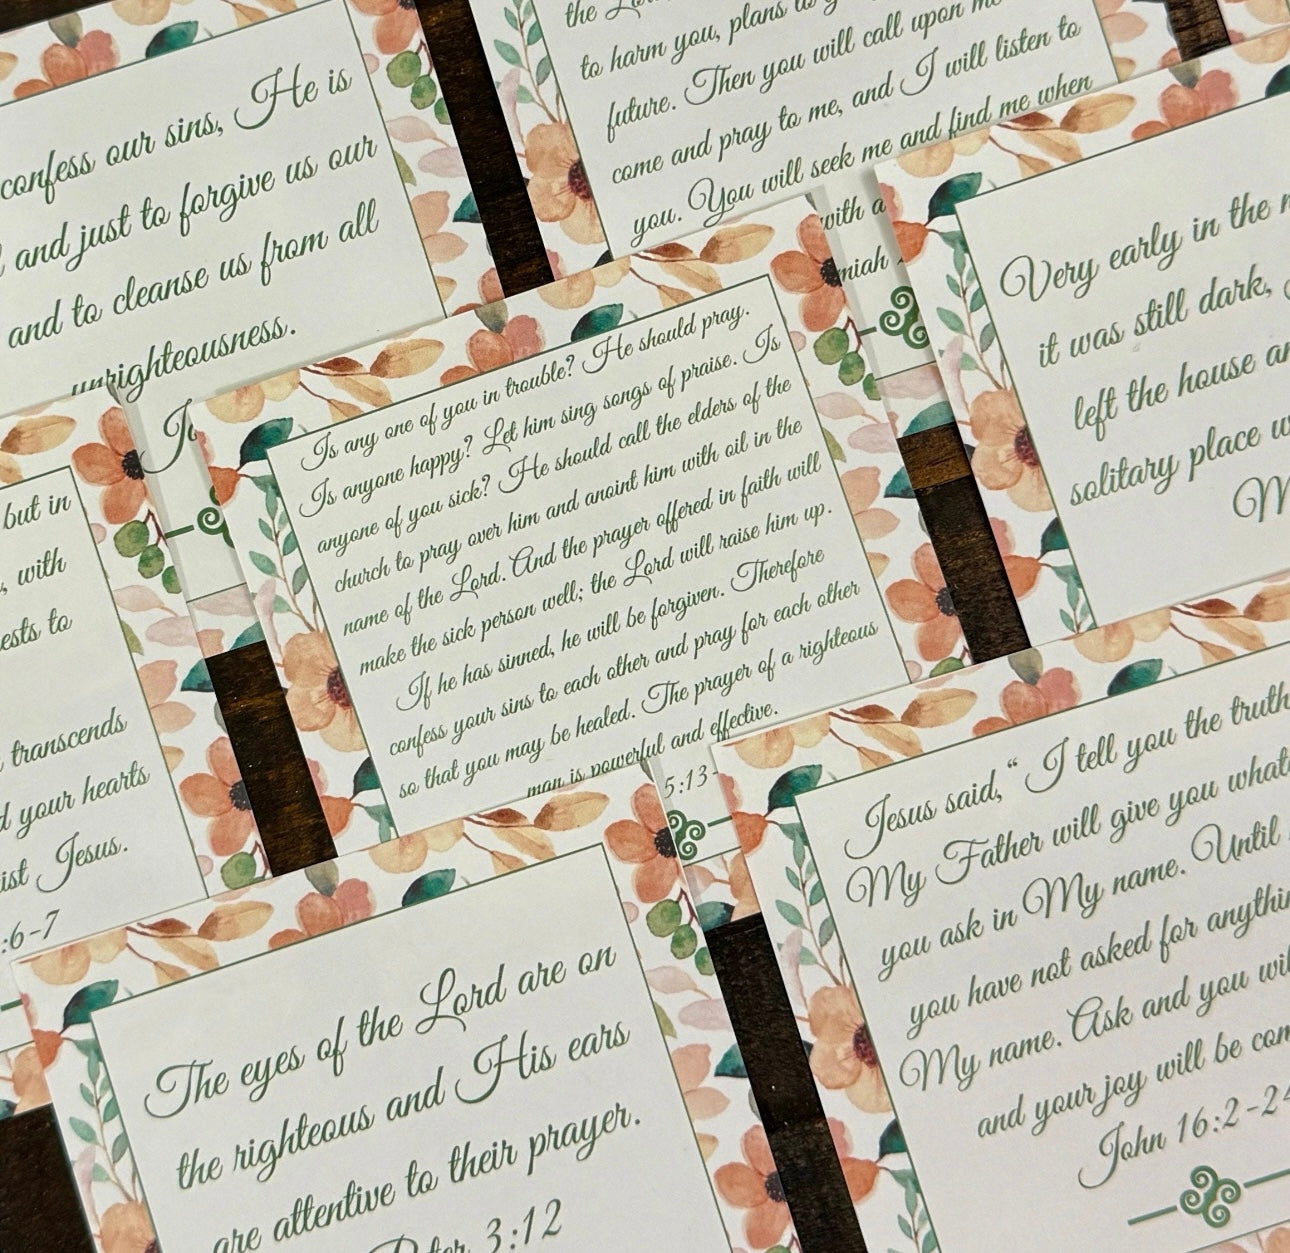 confess our sins, He is
and just to forgive us our
and to cleanse us from all
unrighteousness.
the
to harm you, plans to
future. Then you will call upon me
come and pray to me, and I will listen to
you. You will seek me and find me when
with a
miah
Very early in the
it was still dark,
left the house
solitary place
but in
, with
ests to
transcends
your hearts
ist Jesus.
:6-7
Is any one of you in trouble? He should pray.
Is anyone happy? Let him sing songs of praise. Is
anyone of you sick? He should call the elders of the
church to pray over him and anoint him with oil in the
name of the Lord. And the prayer offered in faith will
make the sick person well; the Lord will raise him up.
If he has sinned, he will be forgiven. Therefore
confess your sins to each other and pray for each other
so that you may be healed. The prayer of a righteous
man is powerful and effective.
5:13-
The eyes of the Lord are on
the righteous and His ears
are attentive to their prayer.
3:12
Jesus said, “ I tell you the truth
My Father will give you what
you ask in My name. Until
you have not asked for anythin
My name. Ask and you wil
and your joy will be com
John 16:2-24